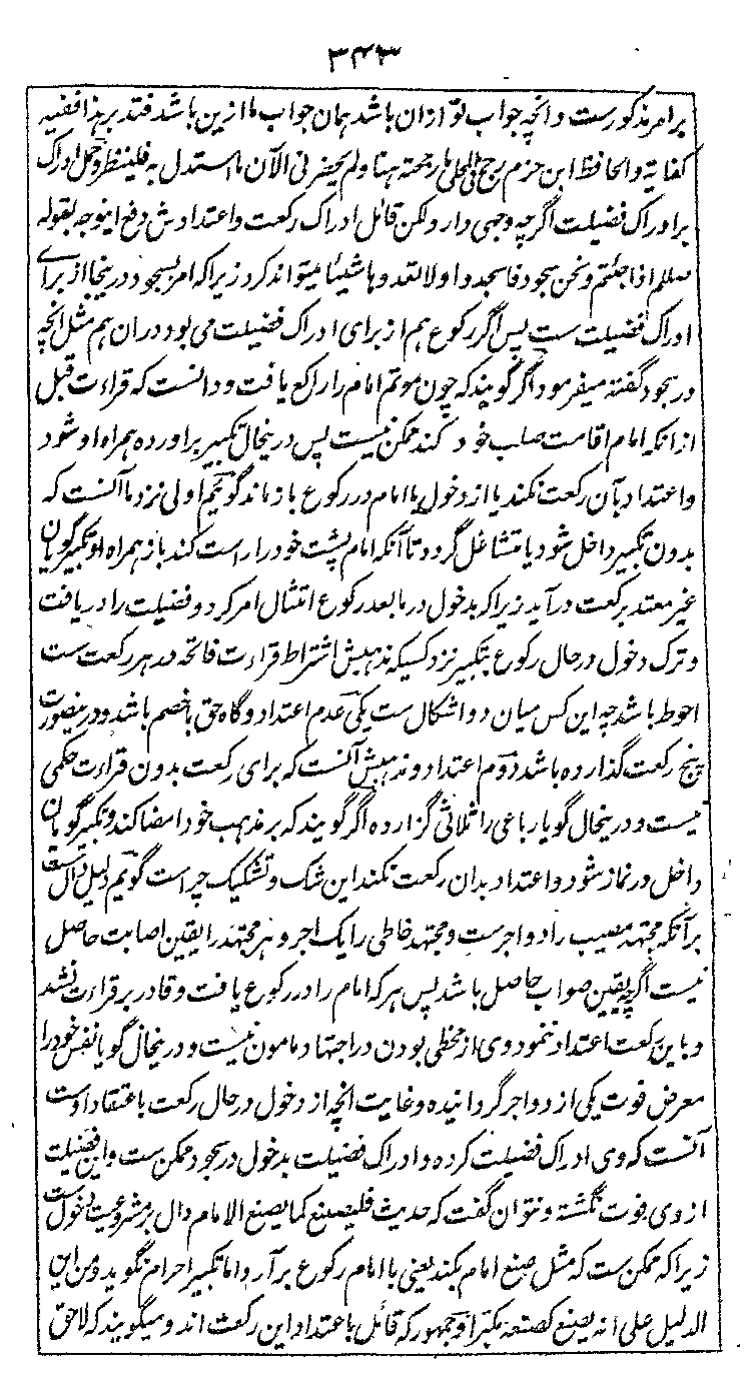 ۳۴۳
برامر مذکورست و انچه جواب تو ازان باشد همان جواب ما ازین باشد فتدبر هذا ففیه
کفایة والحافظ ابن حزم رجح فی المحلی ما رجحته هنا ولم یحضرنی الآن ما استدل به فلینظر و حمل ادراک
بر ادراک فضیلت اگرچه وجهی دارد لکن قائل ادراک رکعت و اعتدادش دفع اینوجه بقوله
صللم اذا جئتم و نحن سجود فاسجدوا ولا تعدوها شیئا میتواند کرد زیرا که امر بسجود درینجا از برای
ادراک فضیلت ست پس اگر رکوع هم از برای ادراک فضیلت می بود دران هم مثل انچه
در سجود گفته میفرمود اگر گویند که چون موتم امام را راکع یافت و دانست که قراءت قبل
ازانکه امام اقامت صلب خود کند ممکن نیست پس درینحال تکبیر براورده همراه او شود
و اعتداد بآن رکعت نکند یا از دخول با امام در رکوع باز ماند گوئیم اولی نزد ما آنست که
بدون تکبیر داخل شود یا متشاغل گردد تا آنکه امام پشت خود را راست کند باز همراه او تکبیر گویان
غیر معتد برکعت درآید زیرا که بدخول در مابعد رکوع امتثال امر کرد و فضیلت را دریافت
و ترک دخول در حال رکوع بتکبیر نزد کسیکه مذهبش اشتراط قراءت فاتحه در هر رکعت ست
احوط باشد چه این کس میان دو اشکال ست یکی عدم اعتداد و گاه حق با خصم باشد و درینصورت
پنج رکعت گذارده باشد دوم اعتداد و مذهبش آنست که برای رکعت بدون قراءت حکمی
نیست و درینحال گویا رباعی را ثلاثی گزارده اگر گویند که بر مذهب خود امضا کند و تکبیر گویان
داخل در نماز شود و اعتداد بدان رکعت نکند این شک و تشکیک چراست گوئیم دلیل دال ست
برآنکه مجتهد مصیب را دو اجرست و مجتهد خاطی را یک اجر و هر مجتهد را یقین اصابت حاصل
نیست اگرچه یقین صواب حاصل باشد پس هر که امام را در رکوع یافت و قادر بر قراءت نشد
و باین رکعت اعتداد ننمود وی از مخطی بودن در اجتهاد مامون نیست و درینحال گویا نفس خود را
معرض فوت یکی از دو اجر گردانیده و غایت انچه از دخول در حال رکعت باعتقاد اوست
آنست که وی ادراک فضیلت کرده و ادراک فضیلت بدخول در سجود ممکن ست و این فضیلت
از وی فوت نگشته و نتوان گفت که حدیث فلیصنع کما یصنع الامام دال بر مشروعیت دخول ست
زیرا که ممکن ست که مثل صنع امام بکند یعنی با امام رکوع برآرد اما تکبیر احرام نگوید و من این
الدلیل علی انه یصنع کصنعه مکبرا و جمهور که قائل باعتداد این رکعت اند و میگویند که لاحق